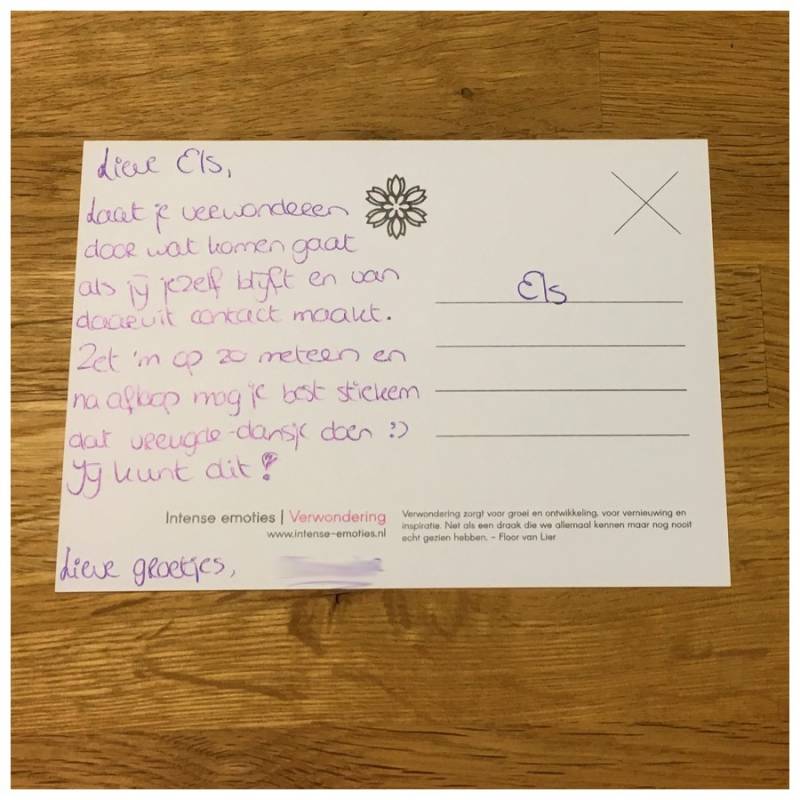 Lieve Els,
Laat je verwonderen
door wat komen gaat
als jij jezelf blijft en van
daaruit contact maakt.
Zet 'm op zo meteen en
na afloop mag je best stiekem
dat vreugde-dansje doen :)
Jij kunt dit!
Lieve groetjes,
Els
Intense emoties | Verwondering
www.intense-emoties.nl
Verwondering zorgt voor groei en ontwikkeling, voor vernieuwing en
inspiratie. Net als een draak die we allemaal kennen maar nog nooit
echt gezien hebben. - Floor van Lier